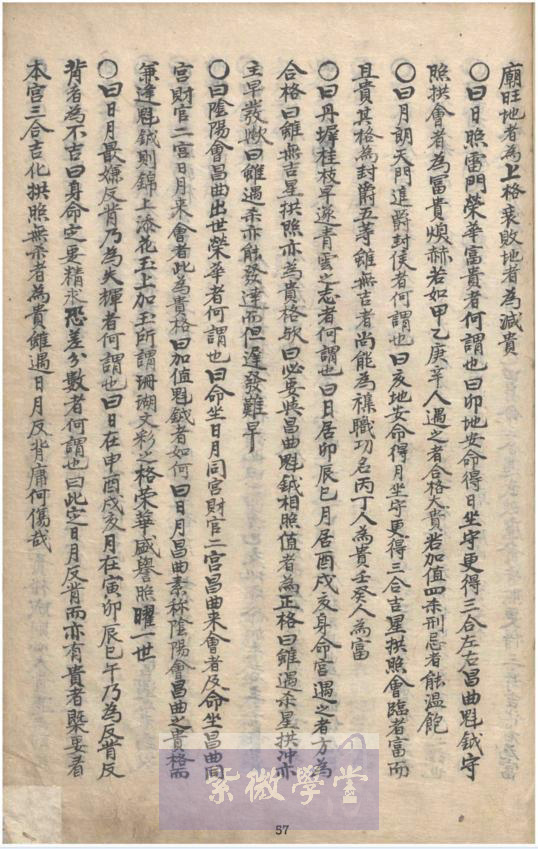 廟旺地者為上格衰敗地者為減貴
○曰日照雷門榮華富貴者何謂也曰卯地安命得日坐守更得三合左右昌曲魁鉞守
照拱會者為富貴煥赫若如甲乙庚辛人遇之者合格大貴若加值四杀刑忌者能溫飽
○曰月朗天門進爵封侯者何謂也曰亥地安命得月坐守更得三合吉星拱照會臨者富而
且貴其格為封爵五等雖無吉者尚能為襍職功名丙丁人為貴壬癸人為富
○曰丹墀桂枝早遂青雲之志者何謂也曰日居卯辰巳月居酉戌亥身命宮遇之者方為
合格曰雖無吉星拱照亦為貴格欤曰必要與昌曲魁鉞相照值者為正格曰雖遇杀星拱冲亦
主早發欤曰雖遇杀亦能發達而但遲發難早
○曰陰陽會昌曲出世榮華者何謂也曰命坐日月同宮財官二宮昌曲來會者及命坐昌曲同
宮財官二宮日月来會者此為貴格曰加值魁鉞者如何曰日月昌曲素称陰陽會昌曲之貴格而
兼逢魁鉞則錦上添花玉上加玉所謂珊瑚文彩之格荣華盛譽照曜一世
○曰日月最嫌反背乃為失輝者何謂也曰日在申酉戌亥月在寅卯辰巳午乃為反背反
背者為不吉曰身命定要精求恐差分數者何謂也曰此定日月反背而亦有貴者槩要看
本宮三合吉化拱照無杀者為貴雖遇日月反背庸何傷哉
紫微學堂
57